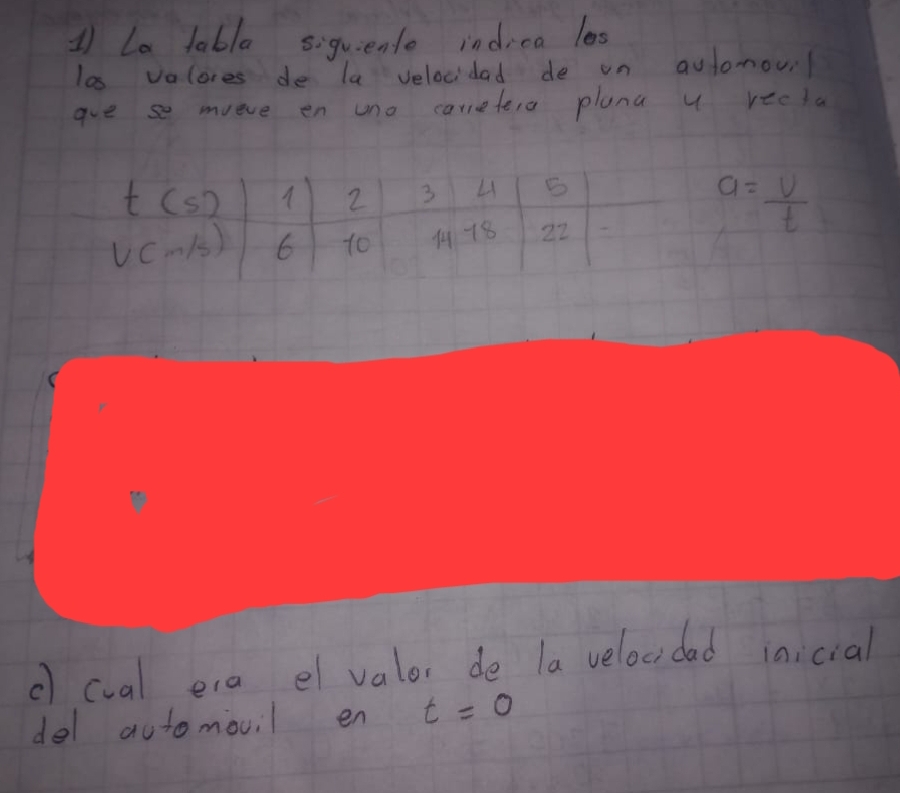 1) La tabla siguiente indica los
los valores de la velocidad de un automovil
que se mueve en una carretera plana y recta
t (s) 1 2 3 4 5
V (m/s) 6 10 14 18 22 -
a = v
t
c) Cual era el valor de la velocidad inicial
del automóvil en t = 0